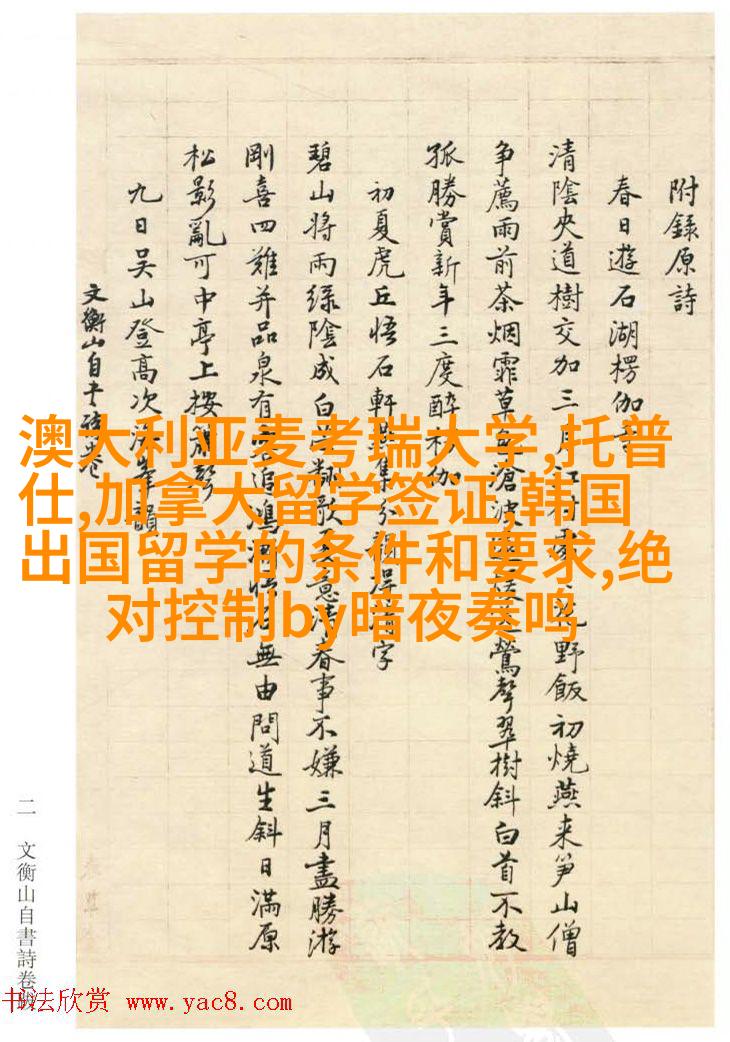 附錄原詩
春日遊石湖楞伽寺
清陰央道樹交加三月江村 花野飯初燒燕来笋山僧
争薦雨前茶烟霏草 滄波 鶯聲翠樹斜白首不教
孤勝賞新年三度醉初伽
初夏虎丘悟石軒 集分韻得情字
碧山将雨緑陰成白 歌 意清春事不嫌三月盡勝游
剛喜四難并品泉有 追鴻 悟石無由問道生斜日滿原
松影亂可中亭上按 聲
九日吴山登高次 峯韻
文衡山自书 卷
澳大利亚麦考瑞大学,托普
仕,加拿大留学签证,韩国
出国留学的条件和要求,绝
对控制by暗夜奏鸣
二 文衡山自書詩卷跋
书法欣赏 www.yac8.com